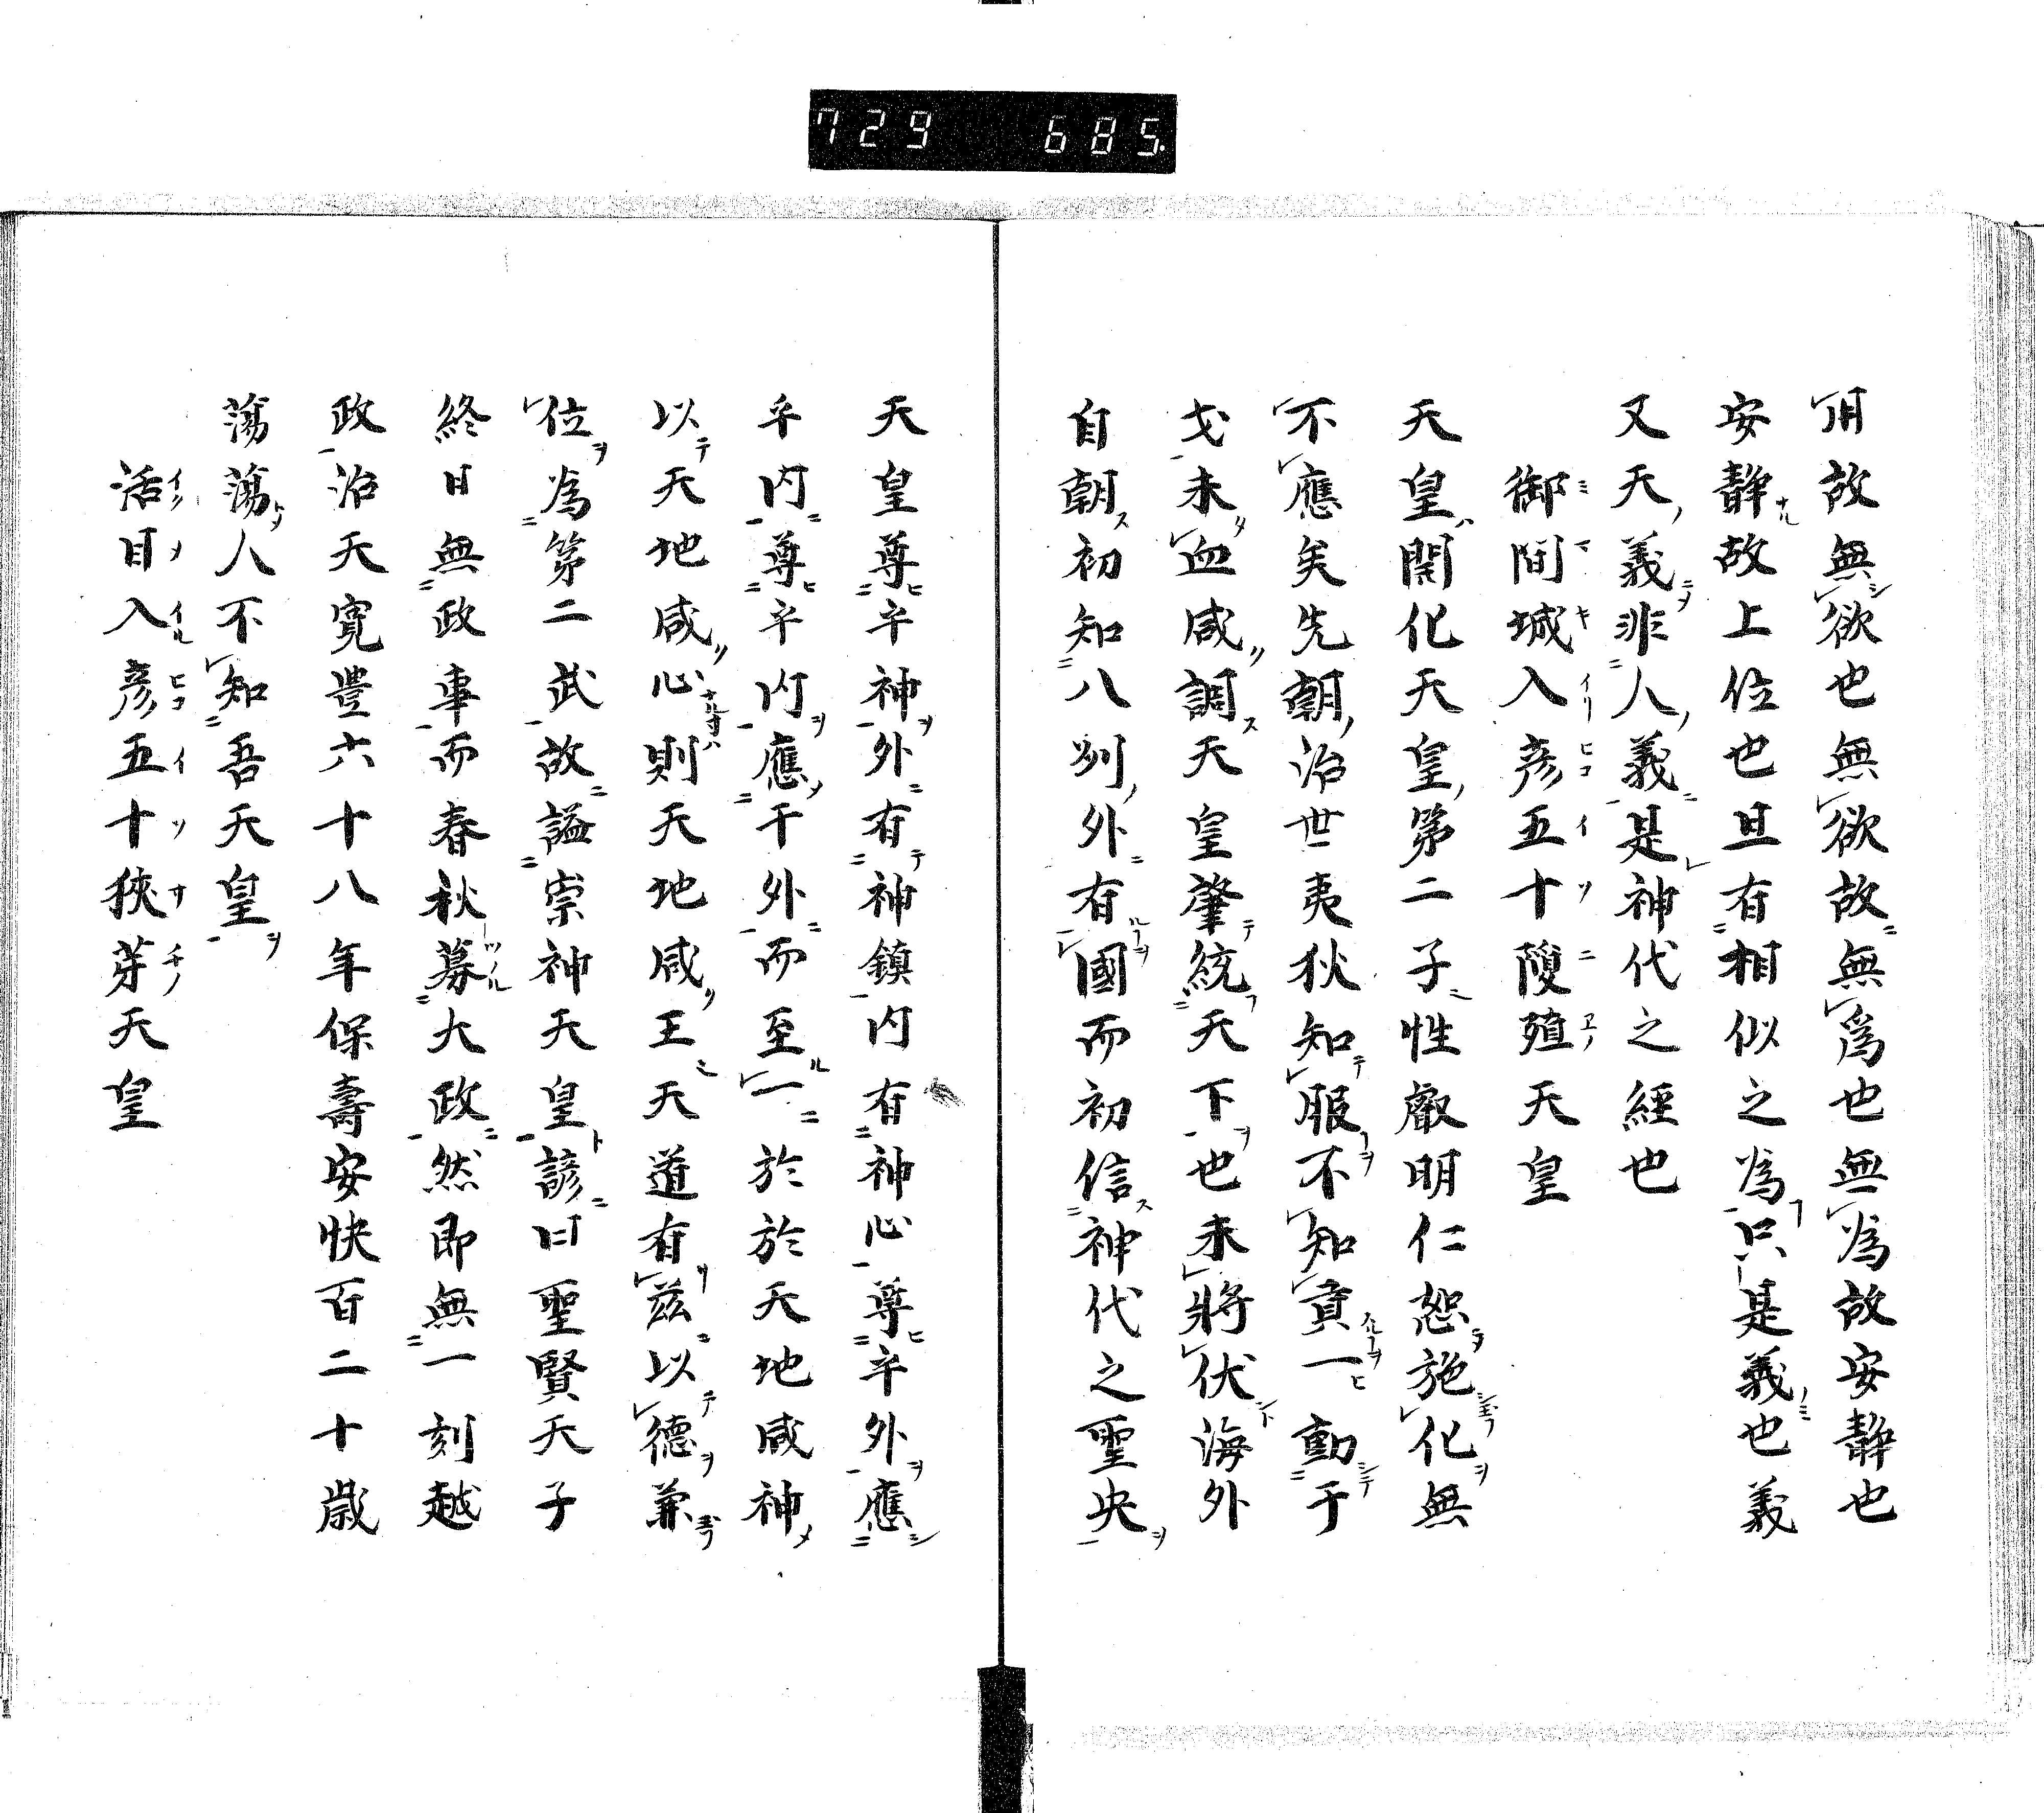 729 685
用故無欲也無欲故無爲也無為故安靜也
安靜故上位也且有相似之為只是義也義
又天義非人義是神代之經也
御間城入彦五十瓊殖天皇
天皇開化天皇第二子性叡明仁恕施化無
不應矣先朝治世夷狄知服不知貢一動于
戈未血咸調天皇肇統天下也未將伏海外
自朝初知八州外有國而初信神代之聖央
天皇尊卒神外有神鎮内有神心尊卒外應
卒内尊卒内應干外而至一於於天地咸神
以天地咸心則天地咸王天道有茲以德兼
位為第二武故謚崇神天皇諺曰聖賢天子
終日無政事而春秋募大政然即無一刻越
政治天寛豐六十八年保壽安快百二十歳
蕩蕩人不知吾天皇
活目入彦五十狹芽天皇